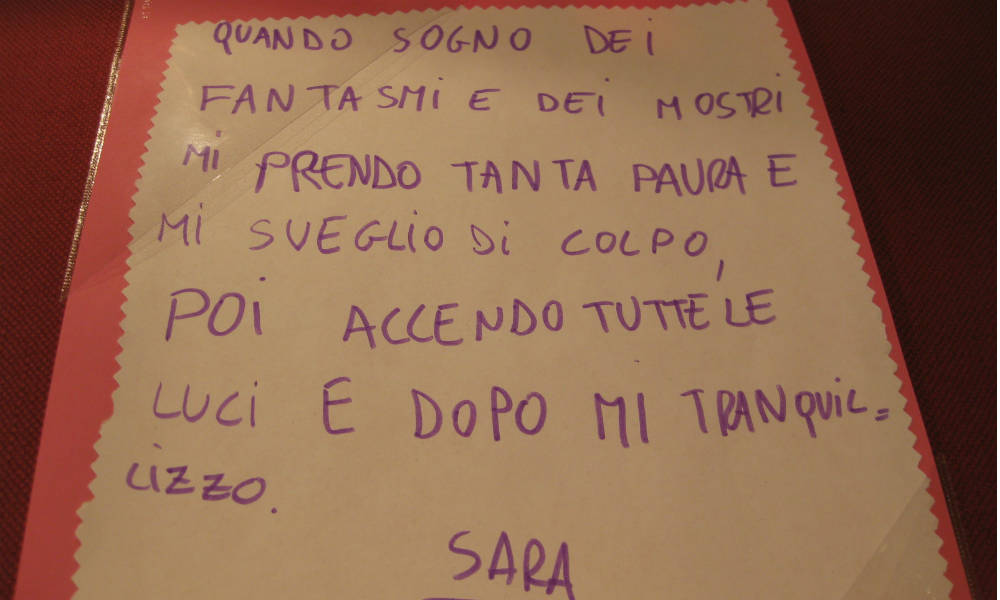 QUANDO SOGNO DEI
FANTASMI E DEI MOSTRI
MI PRENDO TANTA PAURA E
MI SVEGLIO DI COLPO,
POI ACCENDO TUTTE LE
LUCI E DOPO MI TRANQUIL=
LIZZO.
SARA